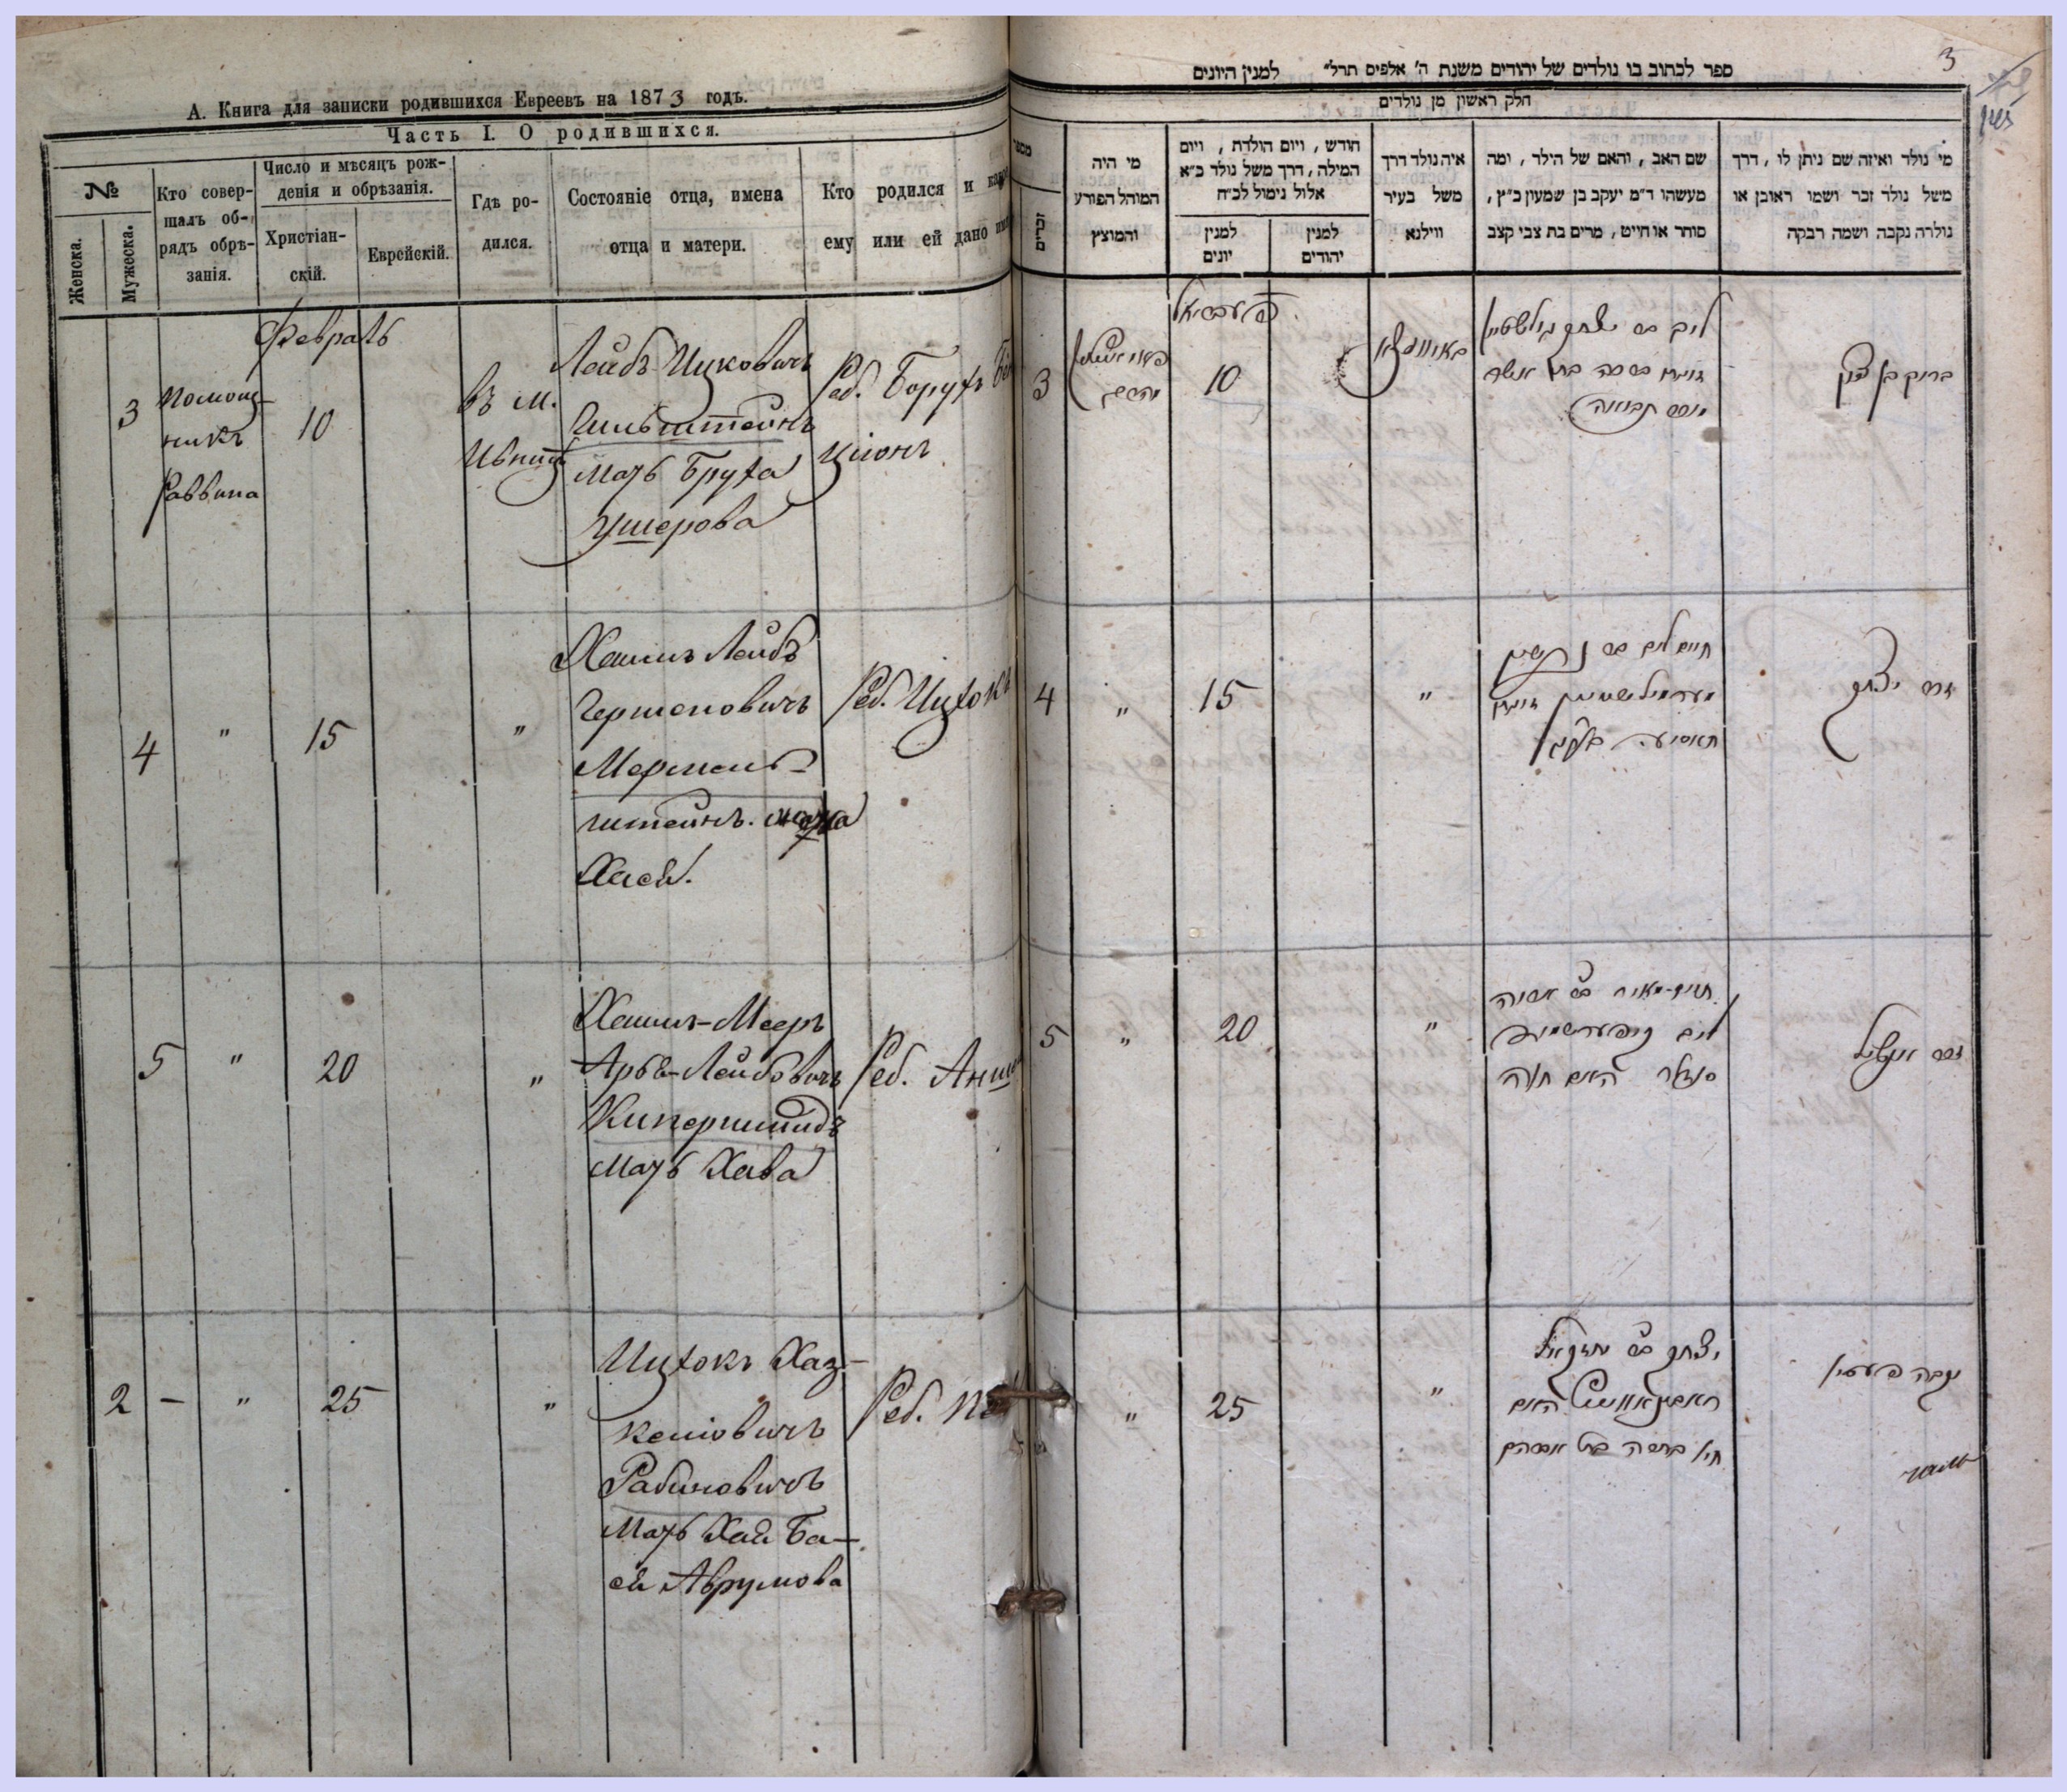 А. Книга для записки родившихся Евреевъ на 1873 годъ.
Часть I. О родившихся.
№
Женска.
Мужеска.
Кто совер-
шалъ об-
рядъ обрѣ-
занія.
Число и мѣсяцъ рож-
денія и обрѣзанія.
Христіан-
скій.
Еврейскій.
Гдѣ ро-
дился.
Состояніе отца, имена
отца и матери.
Кто родился и како
ему или ей дано имя
Февраль
3
Помощ-
никъ
Раввина
10
въ м.
Лейбъ Ицковичъ
Гильштейнъ
Мать Бруха
Ушерова
Реб. Борухъ Бен
ціонъ
4
"
15
"
Хаимъ Лейбъ
Гершоновичъ
Мермель-
штейнъ.
Хася.
Реб. Ицхокъ
5
"
20
"
Хаимъ-Мееръ
Арье-Лейбовичъ
Кипершмидъ
Мать Хава
Реб. Анш
2
—
"
25
"
Ицхокъ Хаз-
келіовичъ
Рабиновичъ
Мать Хая Ба-
ся Аврумова
Реб. Пе
3
ספר לכתוב בו נולדים של יהודים משנת ה' אלפים תרל" למנין היונים
חלק ראשון מן נולדים
מספר
זכרים
מי היה
המוהל הפורע
והמוצץ
חודש, ויום הולדת, ויום
המילה, דרך משל נולד כ"א
אלול נימול לכ"ח
למנין
יונים
למנין
יהודים
איה נולד דרך
משל בעיר
ווילנא
שם האב, והאם של הילד, ומה
מעשהו ד"מ יעקב בן שמעון כ"ץ,
סוחר או חייט, מרים בת צבי קצב
מי נולד ואיזה שם ניתן לו, דרך
משל נולד זכר ושמו ראובן או
נולדה נקבה ושמה רבקה
3
10
ליב בר יצחק
ברוך בן ציון
4
"
15
"
חיים ליב בר
זכר יצחק
5
"
20
"
חיים-מאיר בר אריה
ליב
האם חוה
זכר אנשיל
"
25
"
יצחק בר יחזקאל
ראבינאוויטש האם
חיי באשה בת אברהם
נקבה פעסיא